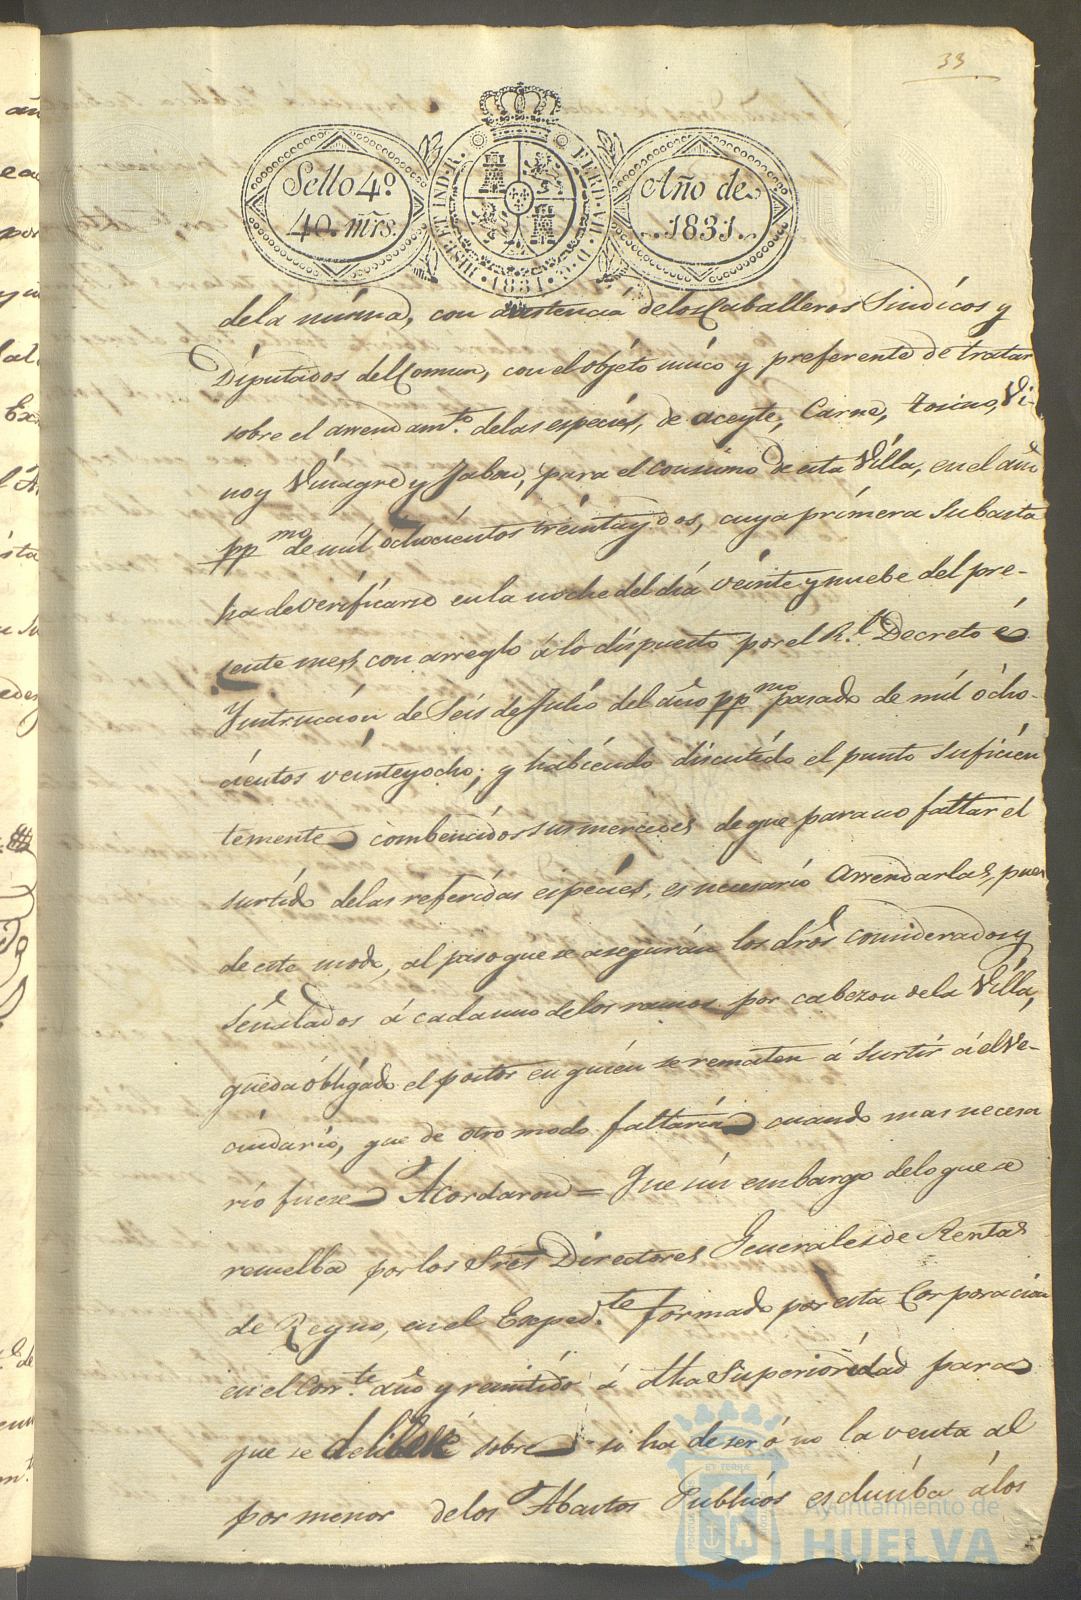 33
Sello 4º
40. mrs.
HISP. ET IND. R. FERD. VII. D. G. 1831.
Año de
1831.
dela misma, con asistencia delos Caballeros Sindicos y
Diputados del Comun, con el objéto unico y preferente de tratar
sobre el arrendamto. delas especies, de aceyte, Carne, tosino, Vi-
no y Vinagre y Jabon, para el consumo de esta Villa, en el año
ppmo de mil ochocientos treinta y dos, cuya primera subasta
ha de verificarse en la noche del dia veinte y nuebe del pre-
sente mes, con arreglo á lo dispuesto por el Rl. Decreto é
Ynstruccion de Seis de Julio del año ppmo pasado de mil ocho-
cientos veinte y ocho; y habiendo discutido el punto suficien
temente combencidos sus mercedes de que para no faltar el
surtido delas referidas especies, es necesario arrendarlas, pues
de este modo, al paso que se aseguran los dros considerados y
señalados á cada uno delos ramos por cabezon dela Villa,
queda óbligado el postor en quien se rematen á surtir á el Ve-
cindario, que de otro modo faltaria cuando mas necesa
rio fuese Acordaron = Que sin embargo delo que se
resuelba por los Sres Directores Generales de Rentas
de Reyno, en el Exped.te formado por esta Corporacion
en el Corr.te año y remitido á dha Superioridad para
que se delibere sobre si ha de ser ó no la venta al
por menor delos Abastos Publicos esclusiba á los
Ayuntamiento de
HUELVA